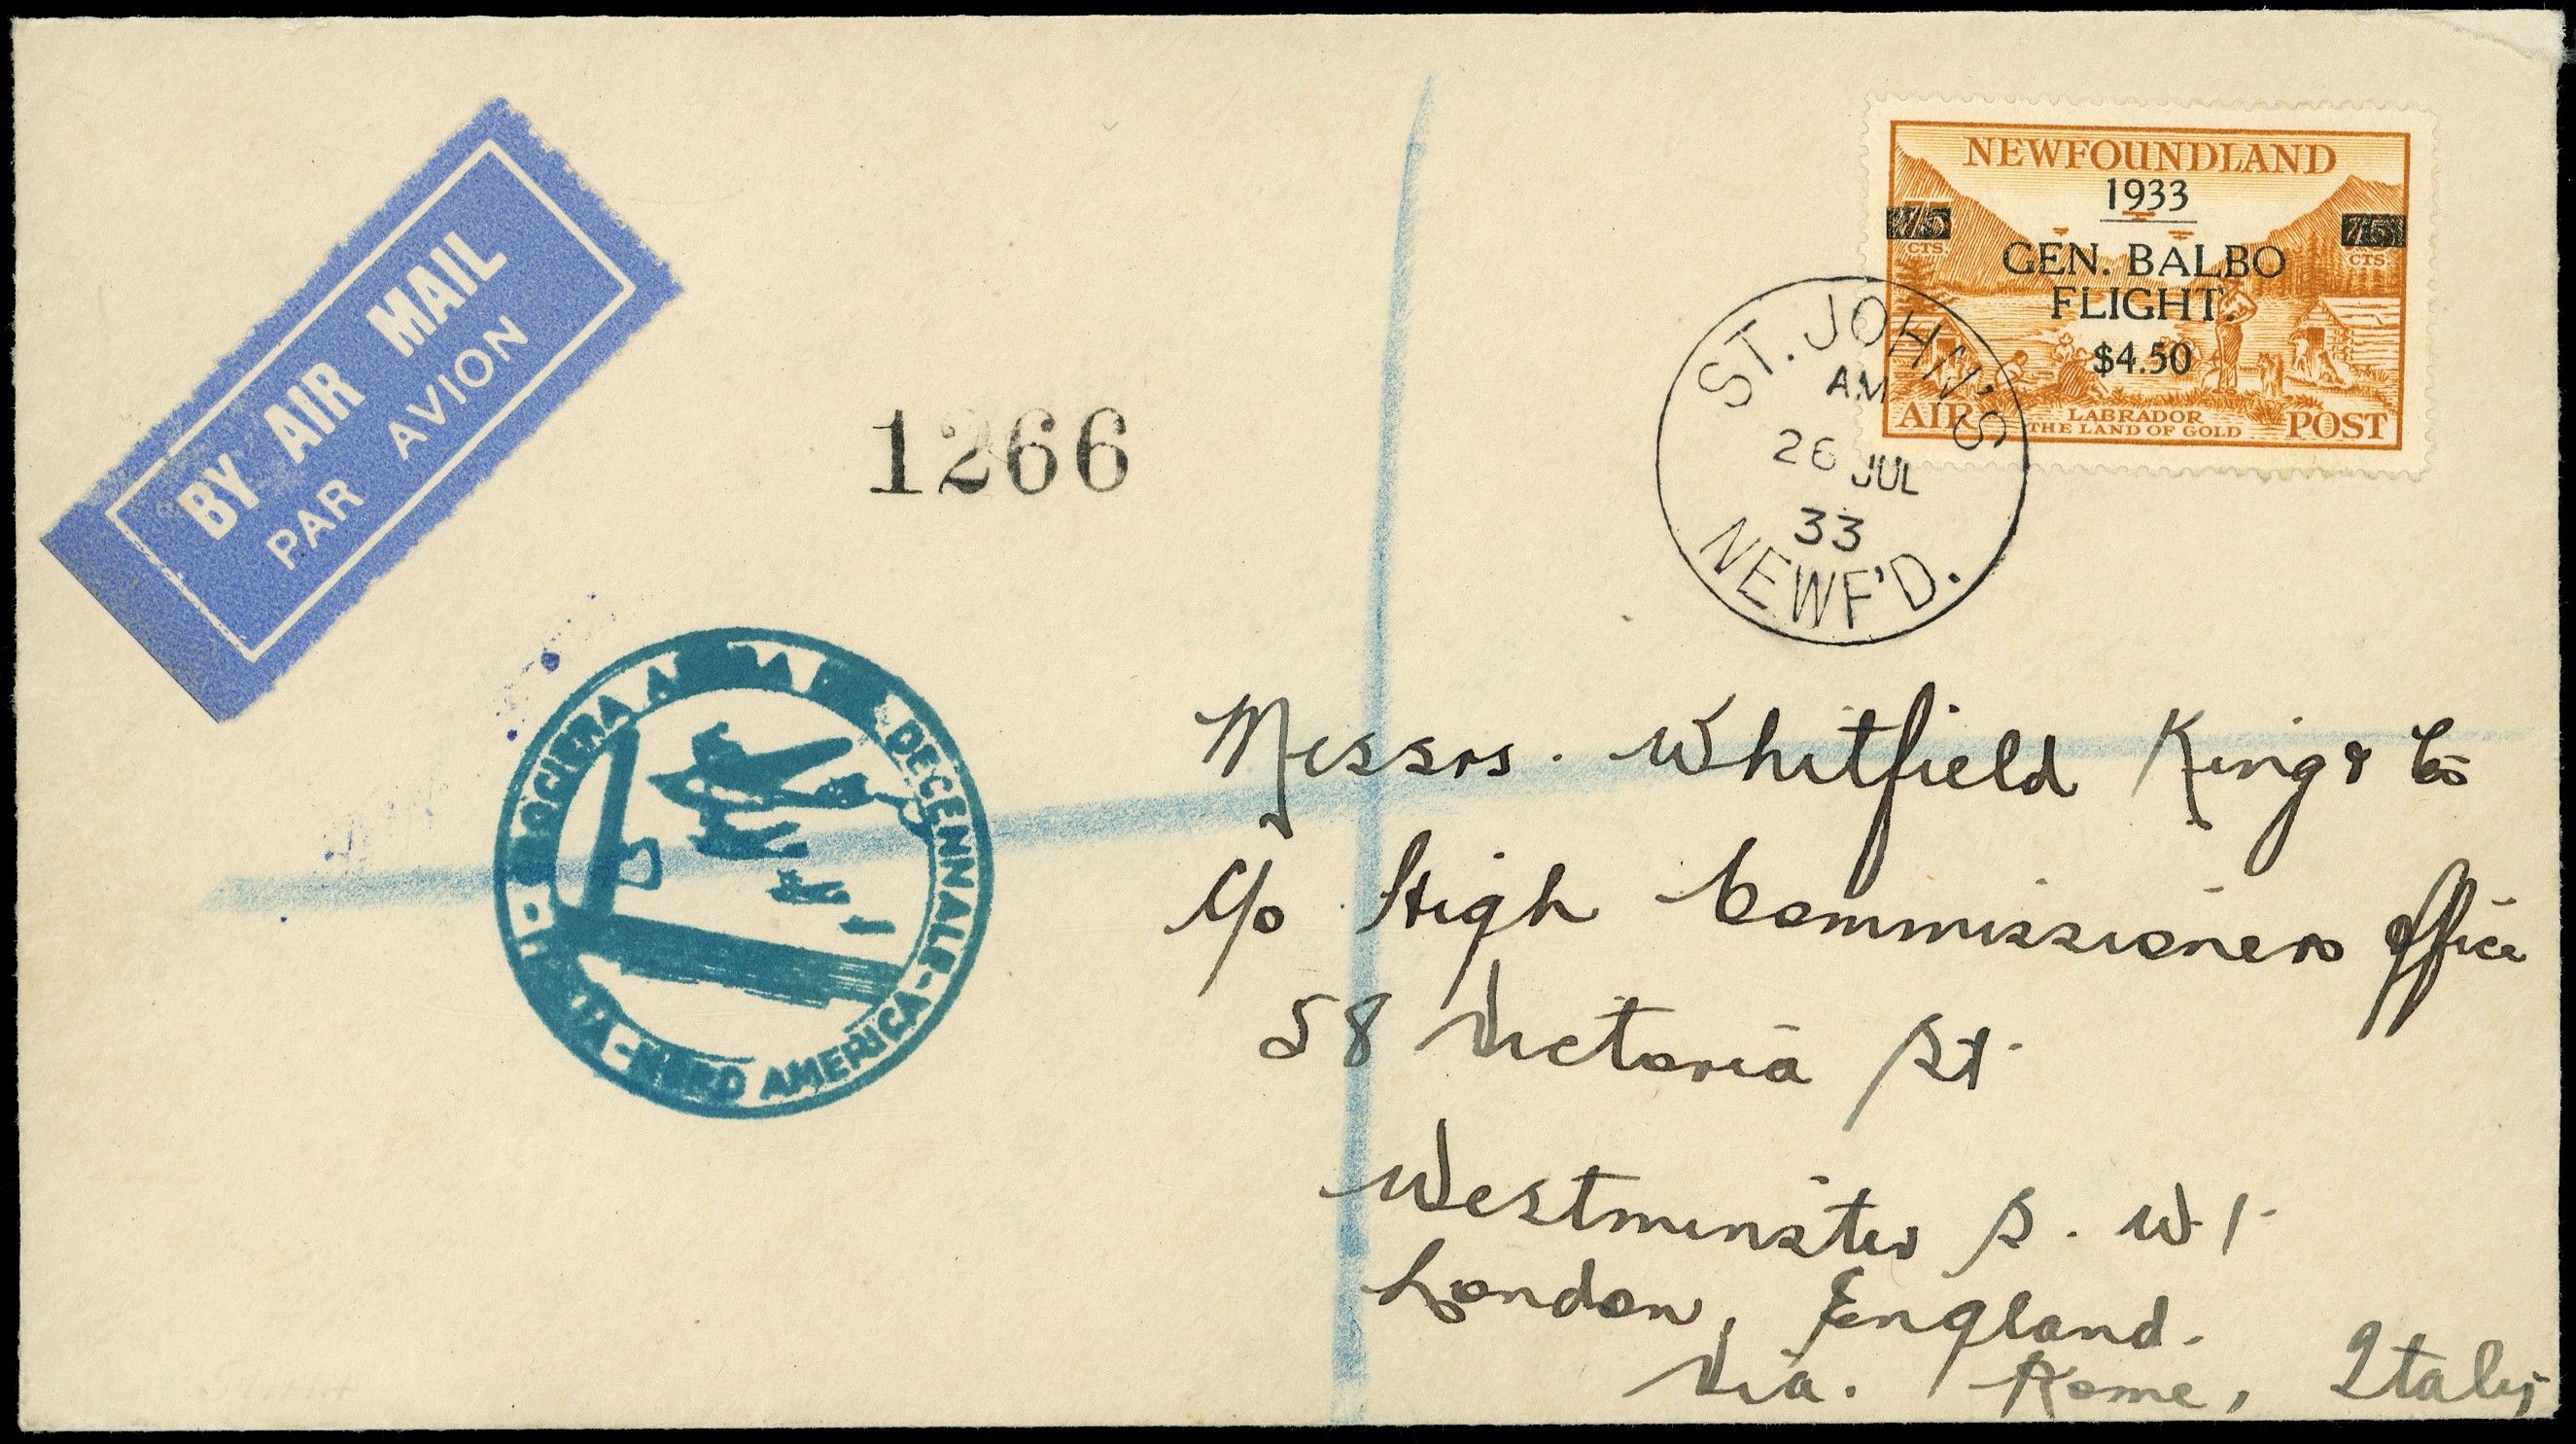 BY AIR MAIL
PAR AVION
1266
NEWFOUNDLAND
1933
75 75
CTS. CTS.
GEN. BALBO
FLIGHT.
$4.50
LABRADOR
AIR THE LAND OF GOLD POST
ST. JOHN'S
AM
26 JUL
33
NEWF'D.
CROCIERA DECENNALE - NORD AMERICA -
Messrs. Whitfield King & Co
c/o High Commissioners Office
58 Victoria St.
Westminster S. W. 1.
London, England.
Via. Rome, Italy